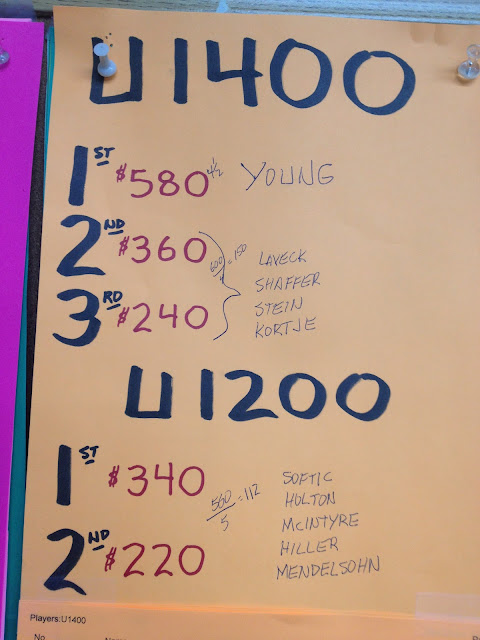 U1400
1ST $580 4½ YOUNG
2ND $360
600/4 = 150
LAVECK
SHAFFER
STEIN
KORTJE
3RD $240
U1200
1ST $340
2ND $220
560/5 = 112
SOFTIC
HOLTON
MCINTYRE
HILLER
MENDELSOHN
Players:U1400
No